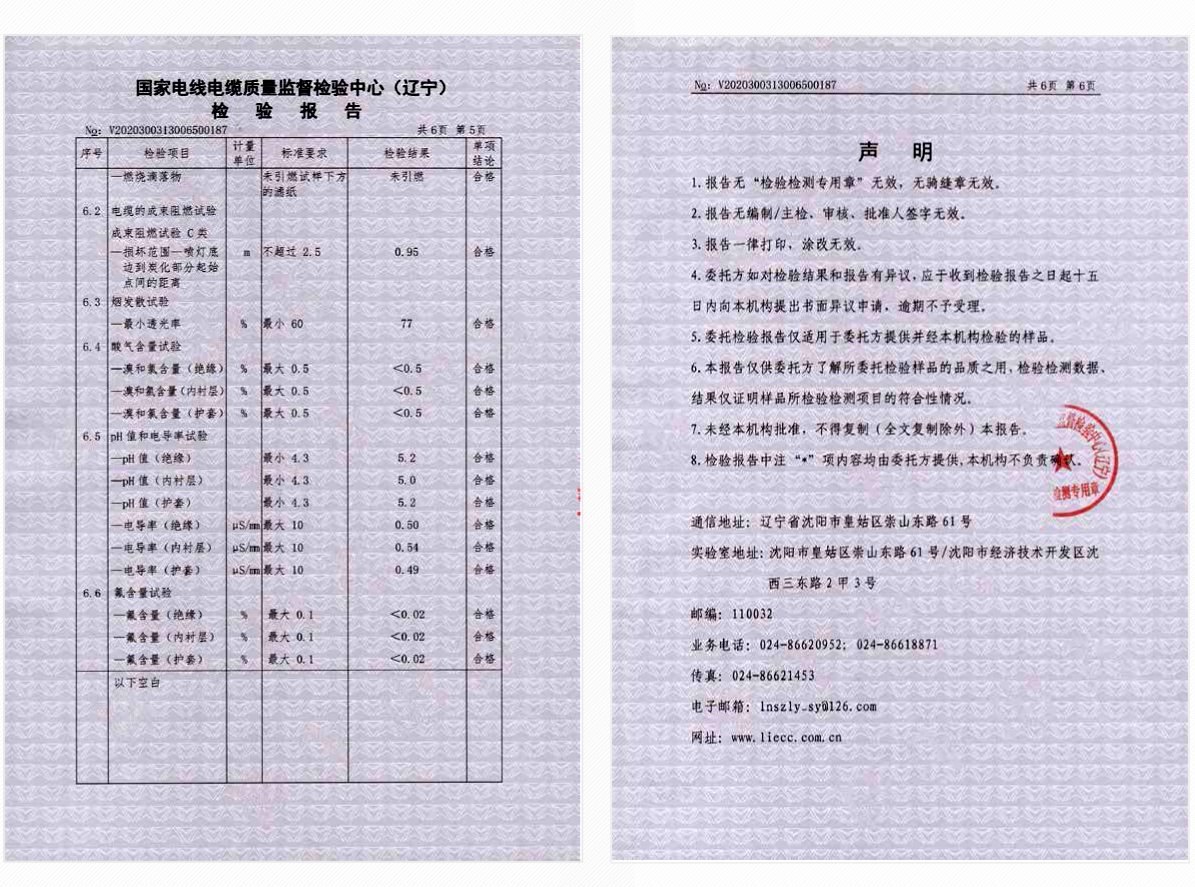 国家电线电缆质量监督检验中心（辽宁）
检 验 报 告
No：V2020300313006500187 共6页 第5页
序号 检验项目 计量单位 标准要求 检验结果 单项结论
—燃烧滴落物 未引燃试样下方的滤纸 未引燃 合格
6.2 电缆的成束阻燃试验
成束阻燃试验 C类
—损坏范围—喷灯底 m 不超过 2.5 0.95 合格
边到炭化部分起始
点间的距离
6.3 烟发散试验
—最小透光率 % 最小 60 77 合格
6.4 酸气含量试验
—溴和氯含量（绝缘） % 最大 0.5 <0.5 合格
—溴和氯含量（内衬层） % 最大 0.5 <0.5 合格
—溴和氯含量（护套） % 最大 0.5 <0.5 合格
6.5 pH值和电导率试验
—pH值（绝缘） 最小 4.3 5.2 合格
—pH值（内衬层） 最小 4.3 5.0 合格
—pH值（护套） 最小 4.3 5.2 合格
—电导率（绝缘） μS/mm 最大 10 0.50 合格
—电导率（内衬层） μS/mm 最大 10 0.54 合格
—电导率（护套） μS/mm 最大 10 0.49 合格
6.6 氟含量试验
—氟含量（绝缘） % 最大 0.1 <0.02 合格
—氟含量（内衬层） % 最大 0.1 <0.02 合格
—氟含量（护套） % 最大 0.1 <0.02 合格
以下空白
No：V2020300313006500187 共6页 第6页
声 明
1.报告无“检验检测专用章”无效，无骑缝章无效。
2.报告无编制/主检、审核、批准人签字无效。
3.报告一律打印，涂改无效。
4.委托方如对检验结果和报告有异议，应于收到检验报告之日起十五
日内向本机构提出书面异议申请，逾期不予受理。
5.委托检验报告仅适用于委托方提供并经本机构检验的样品。
6.本报告仅供委托方了解所委托检验样品的品质之用，检验检测数据、
结果仅证明样品所检验检测项目的符合性情况。
7.未经本机构批准，不得复制（全文复制除外）本报告。
8.检验报告中注“*”项内容均由委托方提供，本机构不负责确认。
督检验中心(辽宁)
检测专用章
通信地址：辽宁省沈阳市皇姑区崇山东路61号
实验室地址：沈阳市皇姑区崇山东路61号/沈阳市经济技术开发区沈
西三东路2甲3号
邮编：110032
业务电话：024-86620952；024-86618871
传真：024-86621453
电子邮箱：lnszly_sy@126.com
网址：www.liecc.com.cn